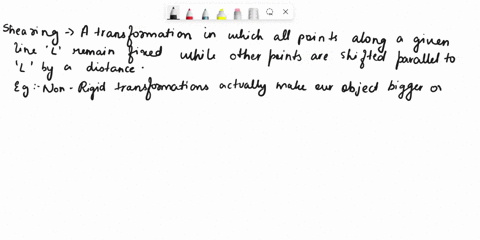 Shearing → A transformation in which all points along a given
line 'L' remain fixed while other points are shifted parallel to
'L' by a distance.
Eg:- Non-Rigid transformations actually make our object bigger or